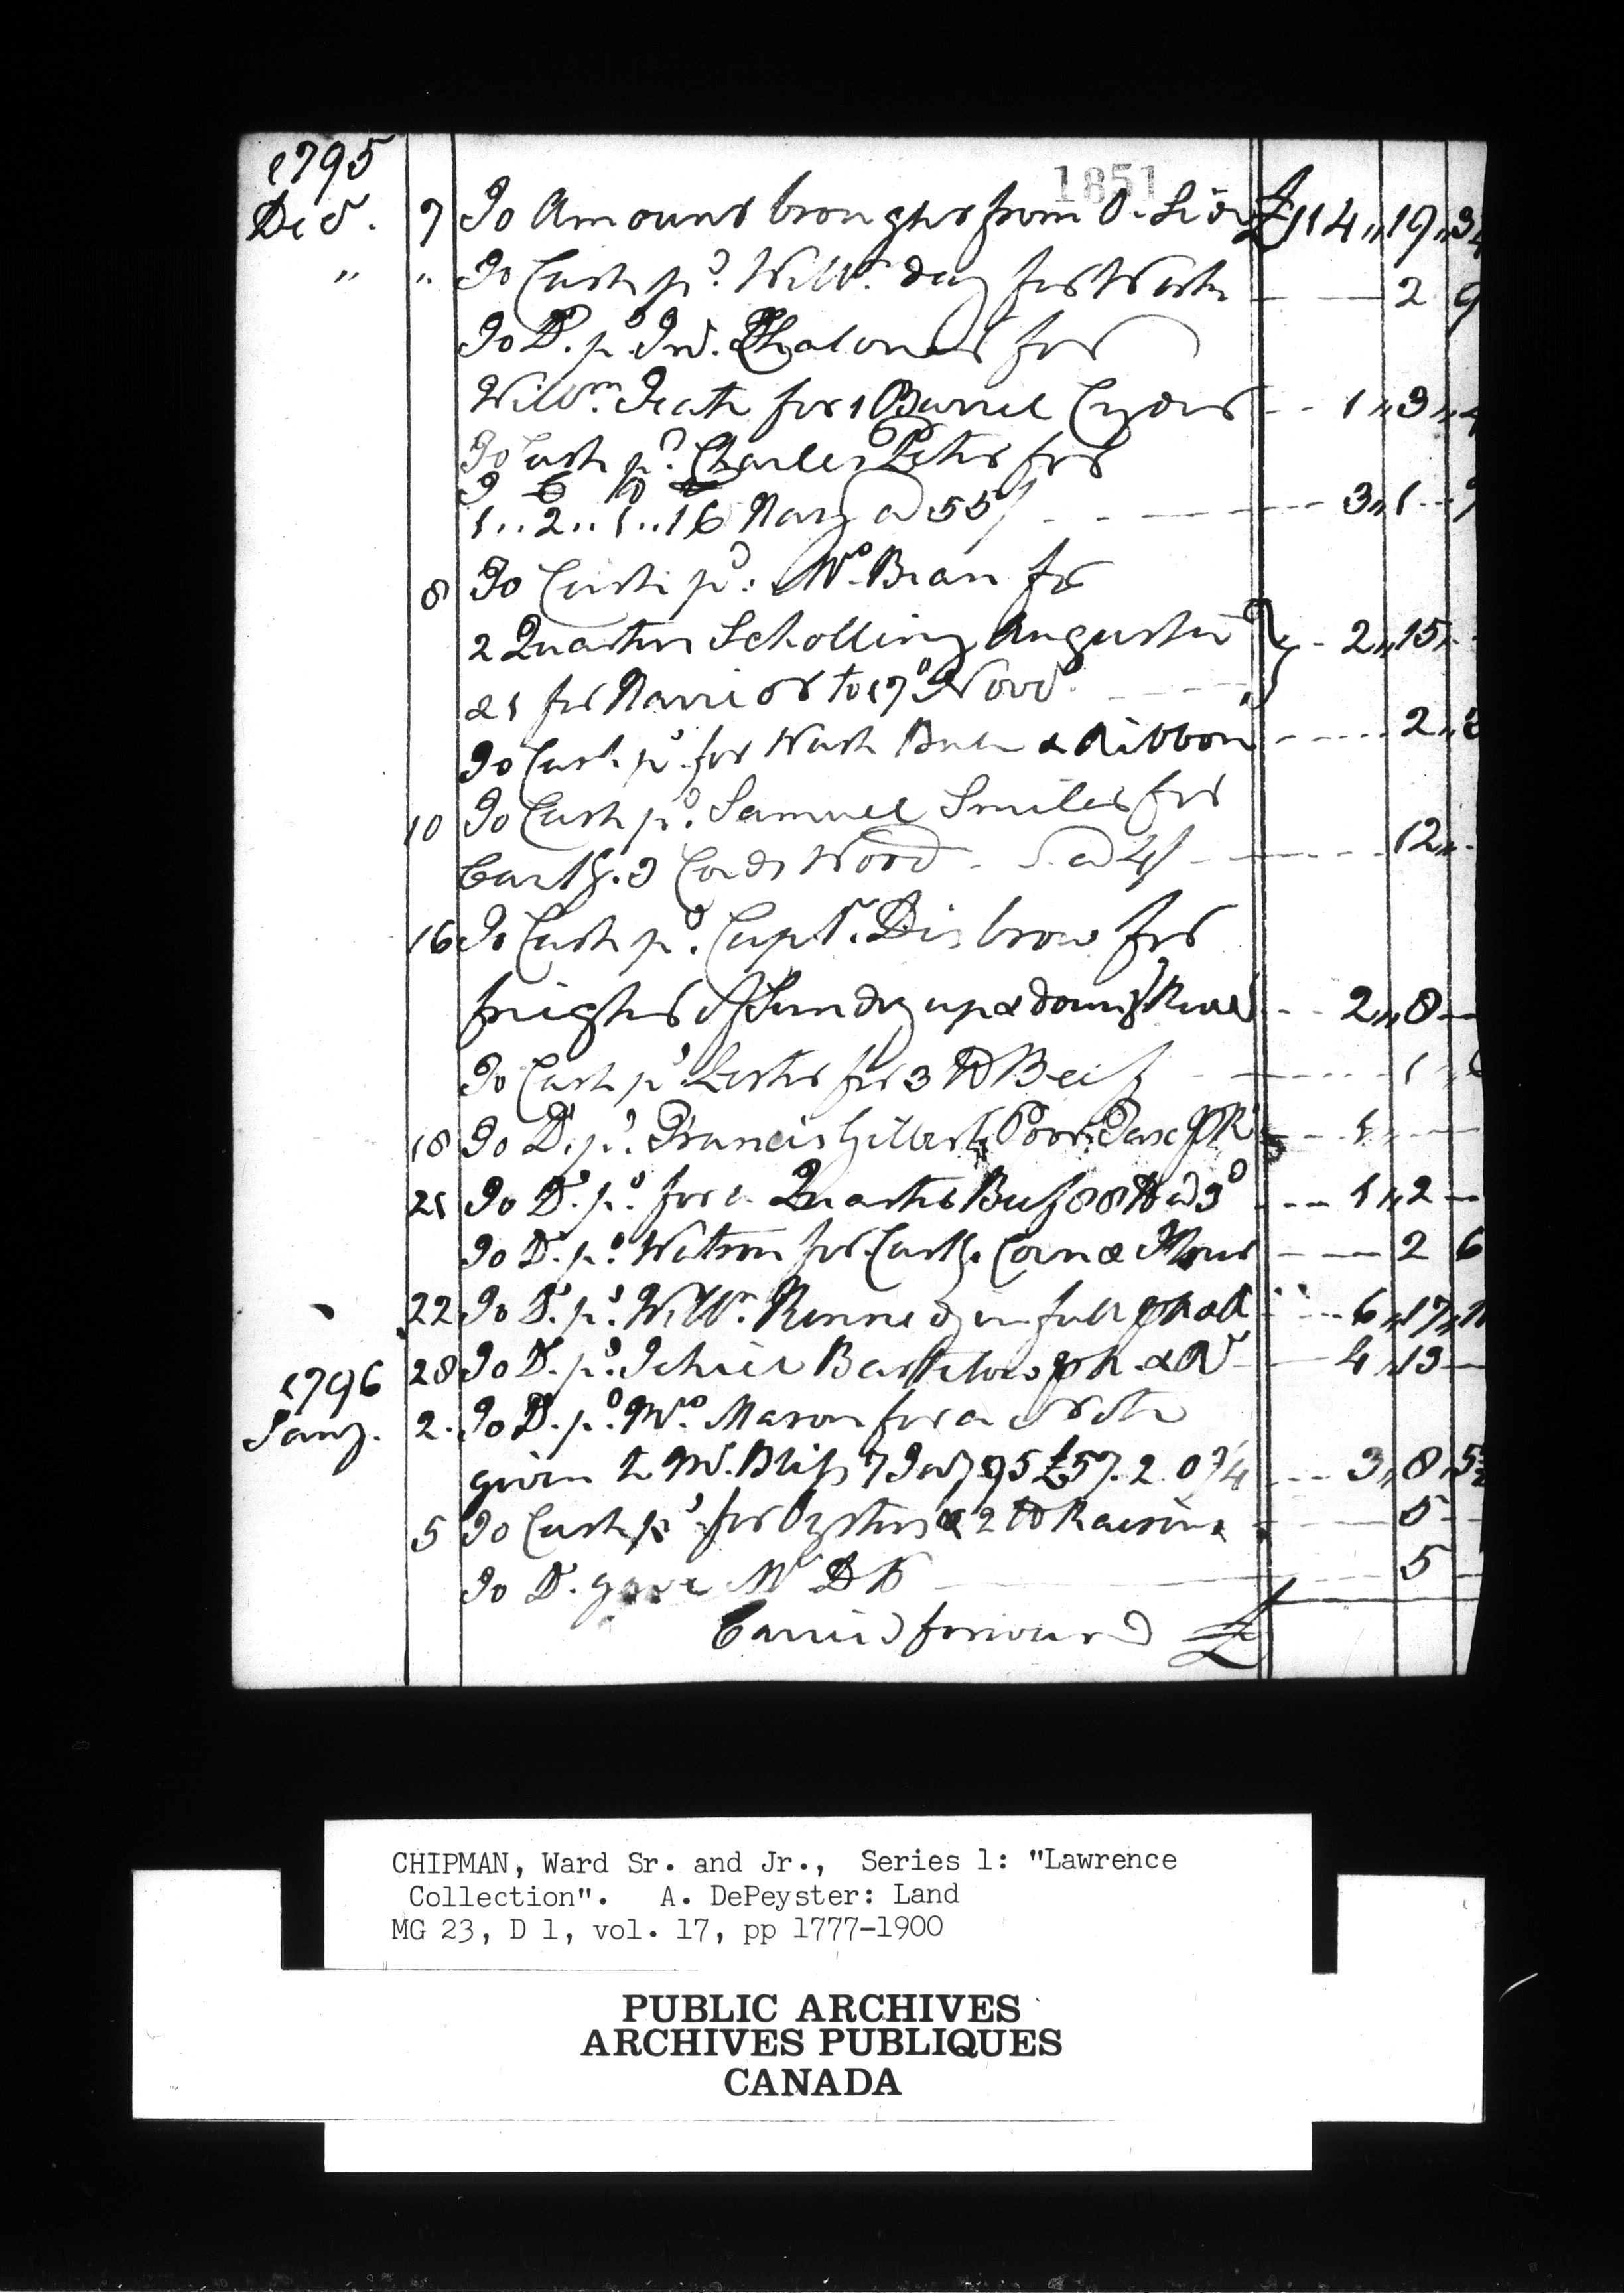 1851
1795
Decr. 7 To Amount brought from O. Side £114,,19,,3¼
" " To Cash pd. Willm. Day for Work 2 9
To Do. pd. Jno. Chaloner for
Willm. for 1 Barrel Cyder 1,,3,,4
To Cash pd. Charles Peters for
T C Q lb
1..2..1..16 Hay @ 55/ 3,,1
8 To Cash pd. Mr. Bean for
2 Quarters Schooling Augusta
& 1 for Harriot to 17th Novr. 2,,15
To Cash pd. for Wash & Ribbon 2
10 To Cash pd. Samuel Smiler for
Cartg. 3 Cords Wood @ 4/ 12
16 To Cash pd. Capt. Disbrow for
freight of Sundry up & down ye River 2,,8
To Cash pd. Lester for 3 lb Beef 1
18 To Do. pd. Francis Gilbert Poor Tax 1
21 To Do. pd. for a Quarter Beef 88 lb @ 3d 1,,2
To Do. pd. Watson for Cartg. Corn & Flour 2 6
22 To Do. pd. Willm. Kennedy in full 6,,17,,11
28 To Do. pd. Jehiel 4,,13
1796
Jany. 2. To Do. pd. Mr. Mason for a
given to Mr. Bliss 7 £57.2.0¾ 3,,8,,5½
5 To Cash pd. for Oysters & 2 lb Raisins 5
To Do. gave Mr DP 5
Carried forward £
CHIPMAN, Ward Sr. and Jr., Series 1: "Lawrence
Collection". A. DePeyster: Land
MG 23, D 1, vol. 17, pp 1777-1900
PUBLIC ARCHIVES
ARCHIVES PUBLIQUES
CANADA